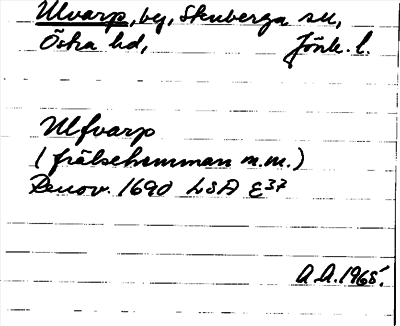 Ulvarp, by, Skuberga sn,
Östra hd, Jönk. l.
Ulfvarp
(frälsehemman m.m.)
Renov. 1690 LSA E37
A.A. 1965.